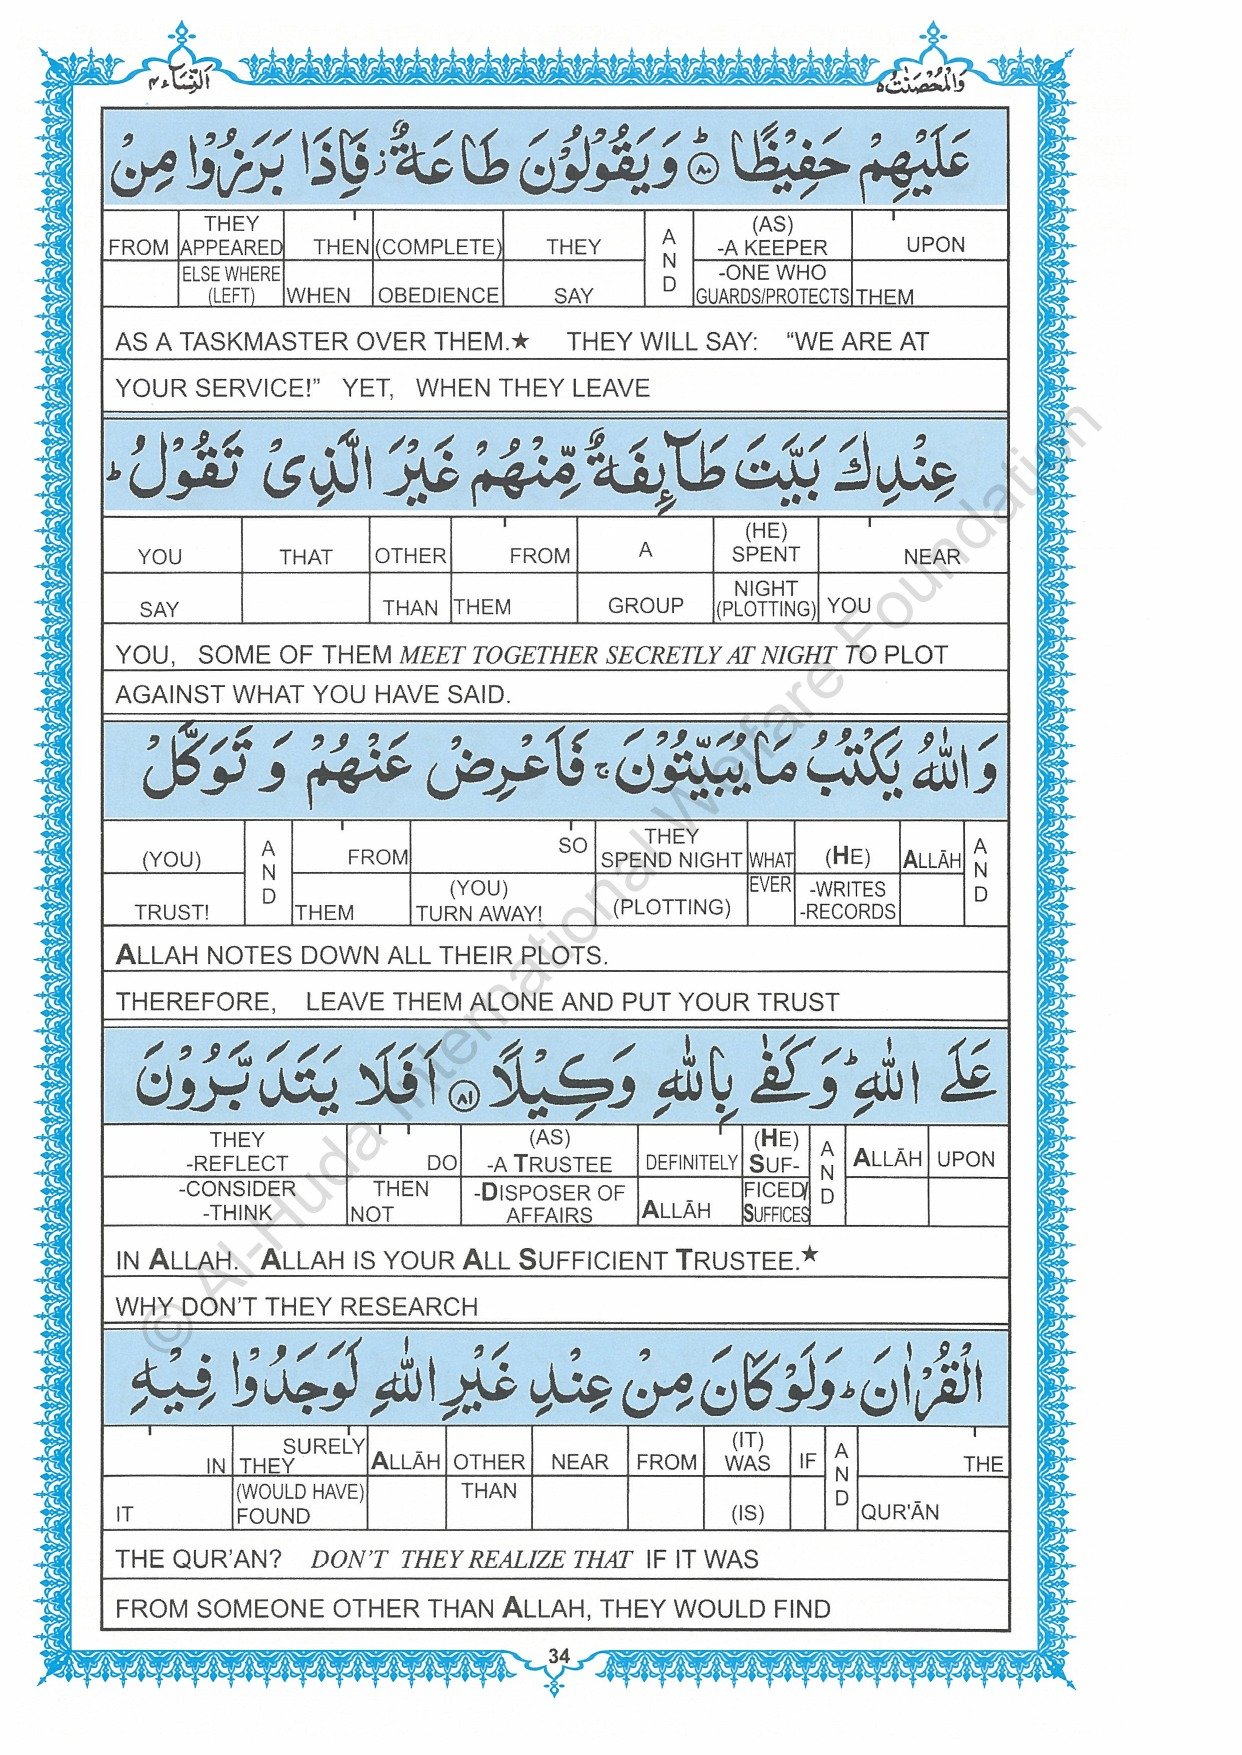 اَلنِّسَآء ٤
وَالْمُحْصَنٰتُ ٥
عَلَيْهِمْ حَفِيْظًا ؕ ٨٠ وَ يَقُوْلُوْنَ طَاعَةٌ ز فَاِذَا بَرَزُوْا مِنْ
FROM THEY APPEARED THEN (COMPLETE) THEY AND (AS) -A KEEPER UPON
ELSE WHERE (LEFT) WHEN OBEDIENCE SAY -ONE WHO GUARDS/PROTECTS THEM
AS A TASKMASTER OVER THEM.★ THEY WILL SAY: “WE ARE AT
YOUR SERVICE!” YET, WHEN THEY LEAVE
عِنْدِكَ بَيَّتَ طَآئِفَةٌ مِّنْهُمْ غَيْرَ الَّذِىْ تَقُوْلُ ؕ
YOU THAT OTHER FROM A (HE) SPENT NEAR
SAY THAN THEM GROUP NIGHT (PLOTTING) YOU
YOU, SOME OF THEM MEET TOGETHER SECRETLY AT NIGHT TO PLOT
AGAINST WHAT YOU HAVE SAID.
وَ اللّٰهُ يَكْتُبُ مَا يُبَيِّتُوْنَ ۚ فَاَعْرِضْ عَنْهُمْ وَ تَوَكَّلْ
(YOU) AND FROM SO THEY SPEND NIGHT WHAT (HE) ALLĀH AND
TRUST! THEM (YOU) TURN AWAY! (PLOTTING) EVER -WRITES -RECORDS
ALLAH NOTES DOWN ALL THEIR PLOTS.
THEREFORE, LEAVE THEM ALONE AND PUT YOUR TRUST
عَلَى اللّٰهِ ؕ وَ كَفٰى بِاللّٰهِ وَكِيْلًا ٨١ اَفَلَا يَتَدَبَّرُوْنَ
THEY -REFLECT DO (AS) -A TRUSTEE DEFINITELY (HE) SUF- AND ALLĀH UPON
-CONSIDER -THINK THEN NOT -DISPOSER OF AFFAIRS ALLĀH FICED/ SUFFICES
IN ALLAH. ALLAH IS YOUR ALL SUFFICIENT TRUSTEE.★
WHY DON’T THEY RESEARCH
الْقُرْاٰنَ ؕ وَ لَوْ كَانَ مِنْ عِنْدِ غَيْرِ اللّٰهِ لَوَجَدُوْا فِيْهِ
IN SURELY THEY ALLĀH OTHER NEAR FROM (IT) WAS IF AND THE
IT (WOULD HAVE) FOUND THAN (IS) QUR'ĀN
THE QUR’AN? DON’T THEY REALIZE THAT IF IT WAS
FROM SOMEONE OTHER THAN ALLAH, THEY WOULD FIND
34
© Al-Huda International Welfare Foundation